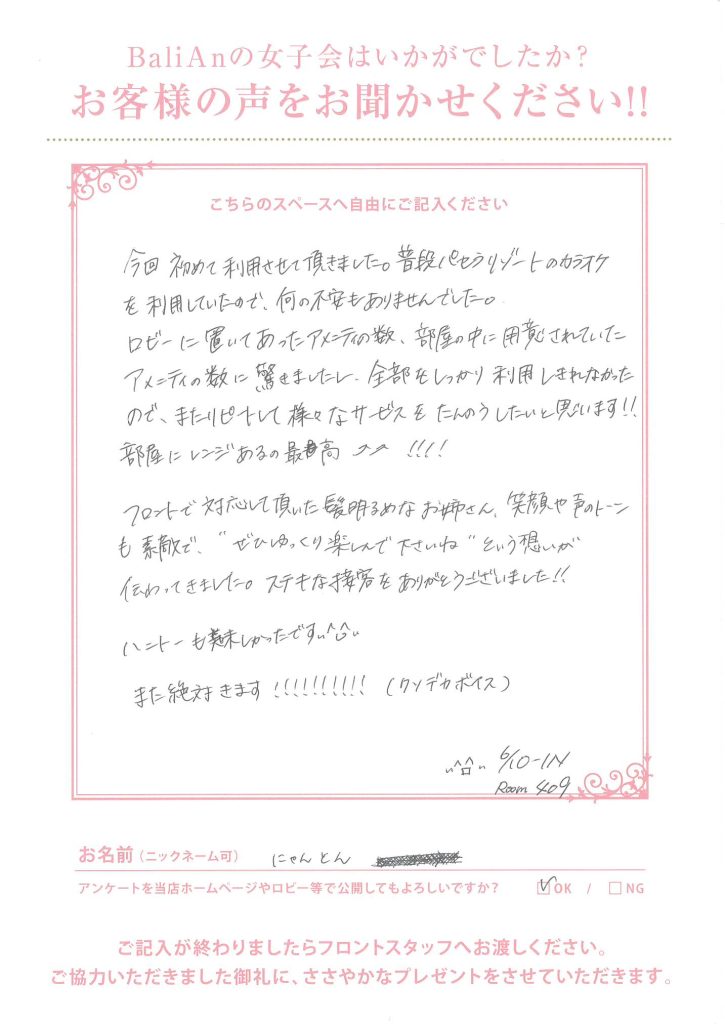 BaliAnの女子会はいかがでしたか?
お客様の声をお聞かせください!!
こちらのスペースへ自由にご記入ください
今回 初めて利用させて頂きました。普段パセラリゾートのカラオケ
を利用していたので、何の不安もありませんでした。
ロビーに置いてあったアメニティの数、部屋の中に用意されていた
アメニティの数に驚きましたし、全部をしっかり利用しきれなかった
ので、またリピートして様々なサービスをたんのうしたいと思います!!
部屋にレンジあるの最高 ↗↗ !!!!
フロントで対応して頂いた髪明るめなお姉さん、笑顔や声のトーン
も素敵で、"ぜひゆっくり楽しんで下さいね"という想いが
伝わってきました。ステキな接客をありがとうございました!!
ハニトーも美味しかったです
また絶対きます !!!!!!!!!! (クソデカボイス)
6/10-IN
Room 409
お名前(ニックネーム可) にゃんとん
アンケートを当店ホームページやロビー等で公開してもよろしいですか? ☑OK / □NG
ご記入が終わりましたらフロントスタッフへお渡しください。
ご協力いただきました御礼に、ささやかなプレゼントをさせていただきます。